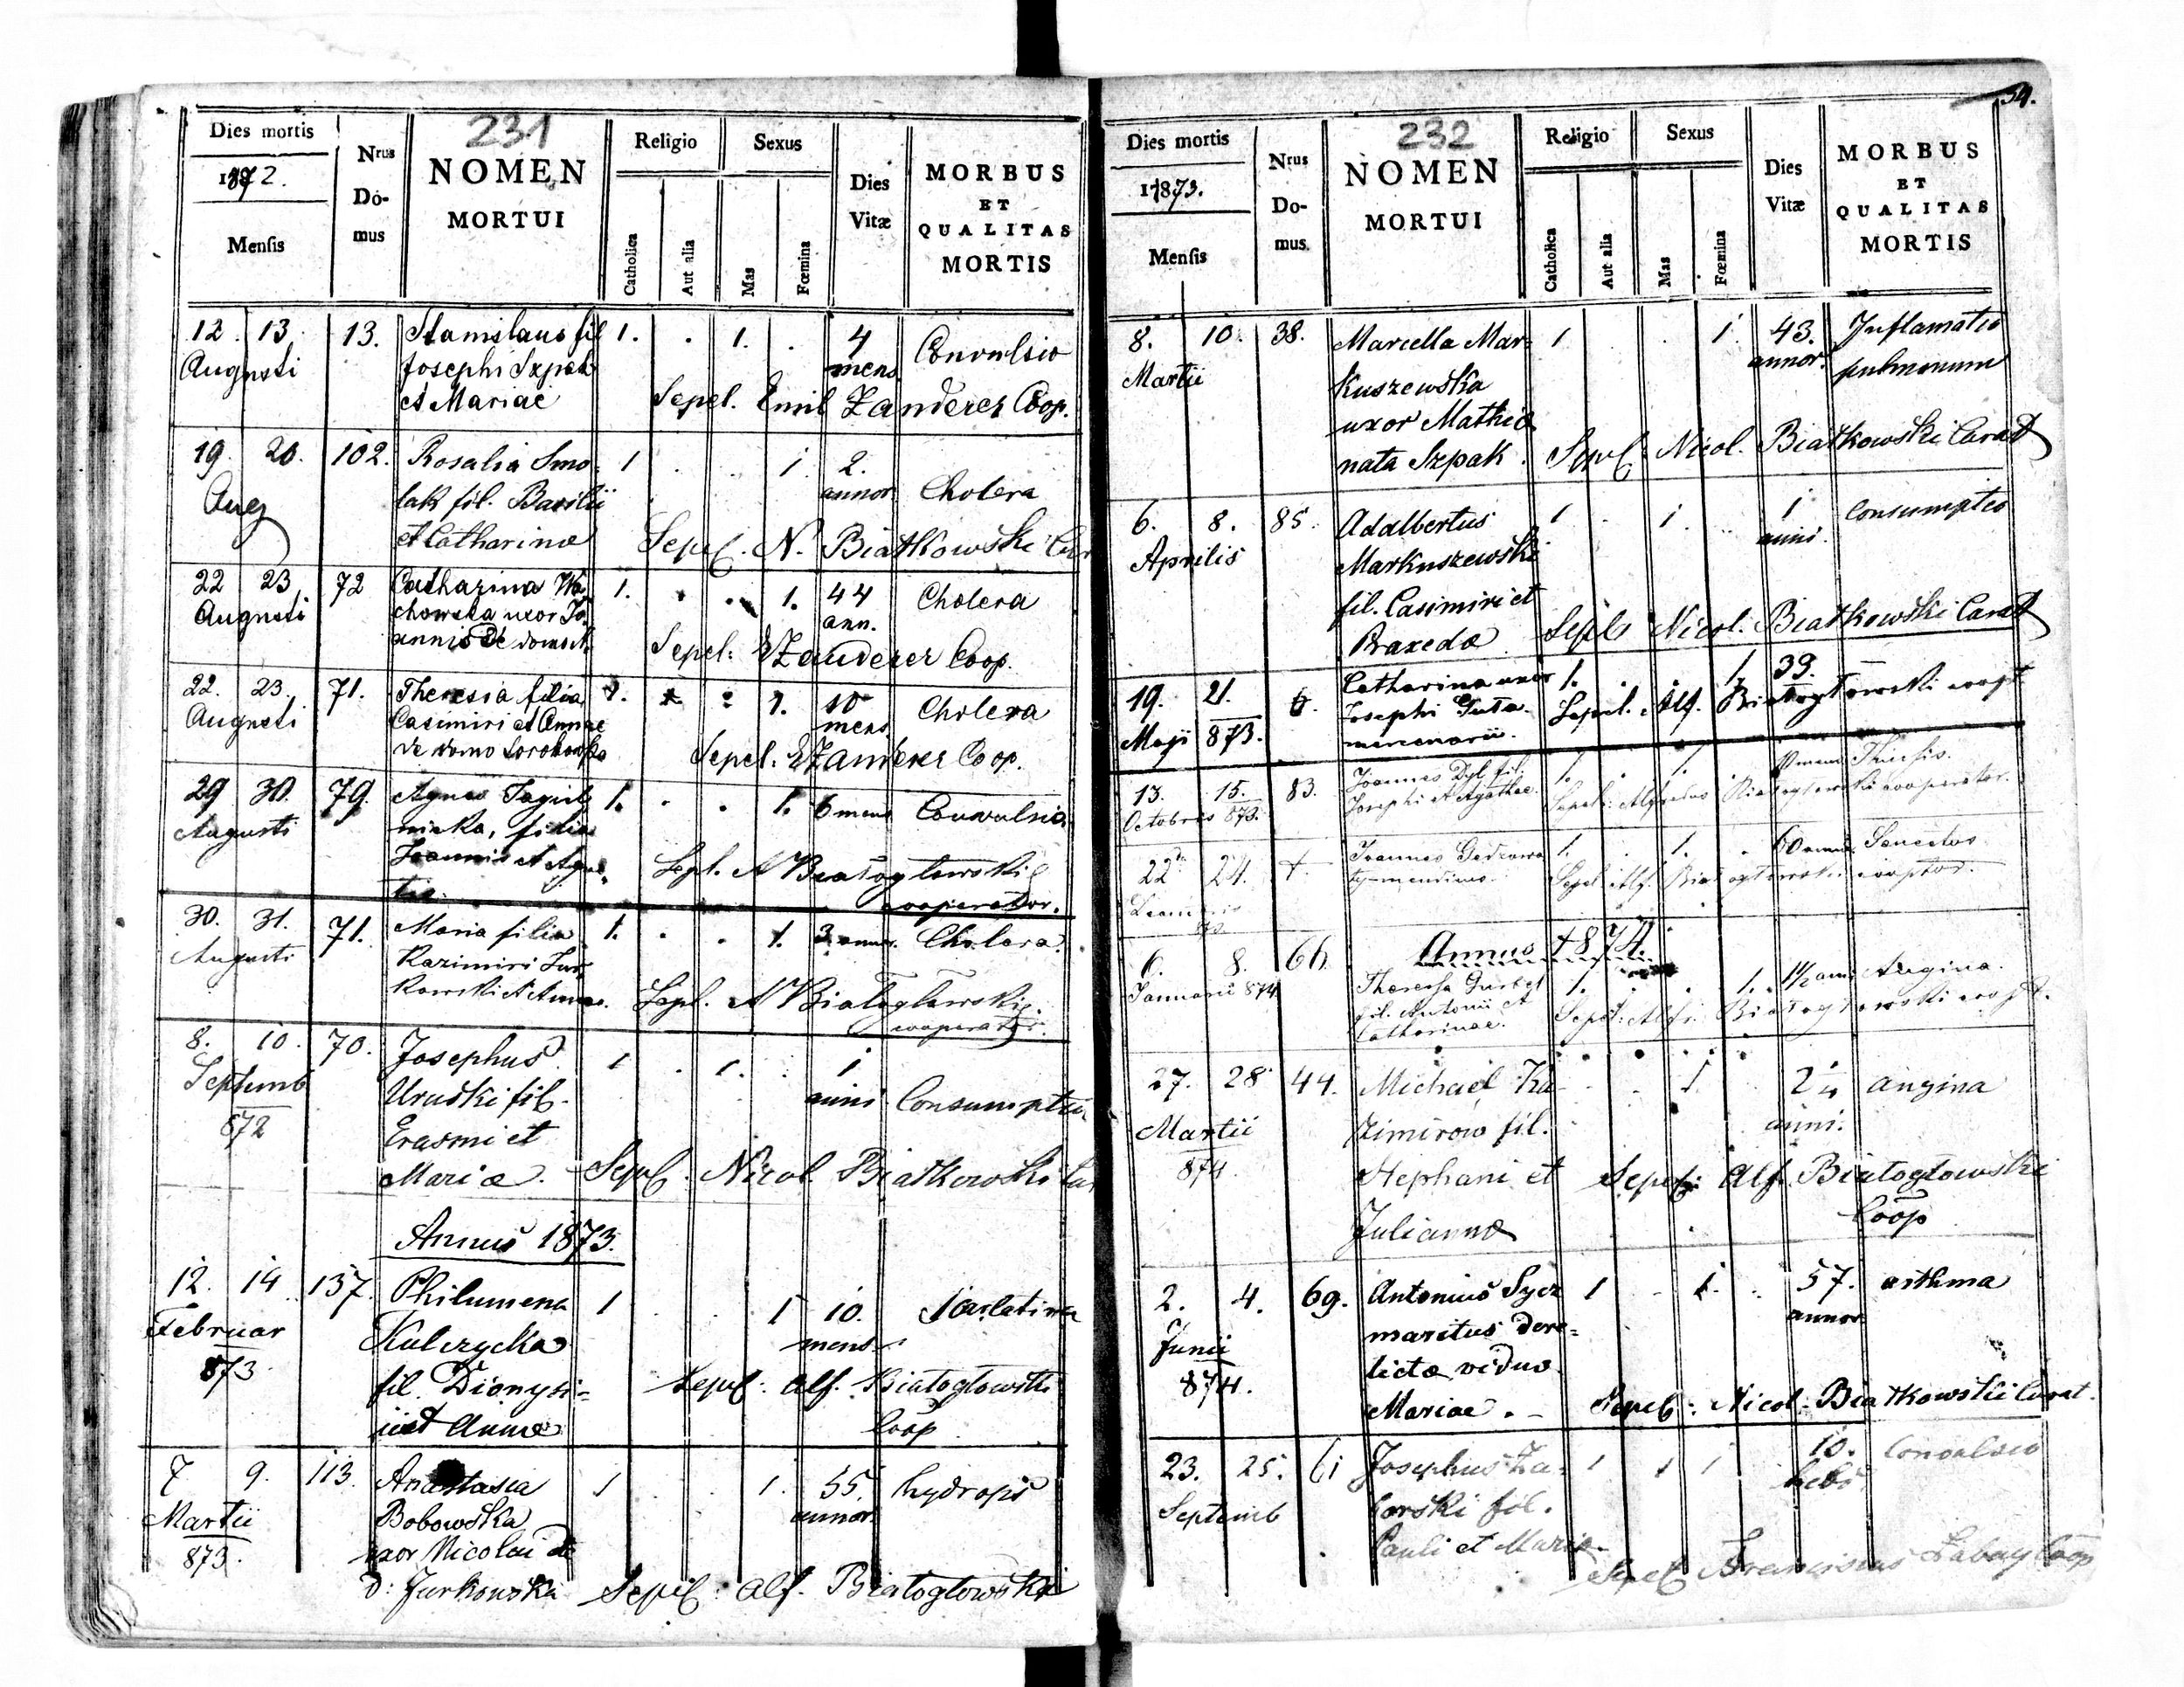 231
Dies mortis
1872.
Mensis
Nrus
Do-
mus
NOMEN
MORTUI
Religio
Catholica
Aut alia
Sexus
Mas
Fœmina
Dies
Vitæ
MORBUS
ET
QUALITAS
MORTIS
12. 13. 13. Stanislaus fil 1. . 1. . 4 Convulsio
Augusti Josephi Szpak mens
et Mariae Sepel. Emil Zanderer Coop.
19. 20. 102. Rosalia Smo- 1 . . 1 2.
Aug lak fil. Basilii annor. Cholera
et Catharinæ Sepel. N. Białkowski Cur
22 23 72 Catharina
Augusti chowska uxor Jo- 1. . . 1. 44 Cholera
annis de domo ann.
Sepel: E Zanderer Coop.
22. 23. 71. Theresia filia 1. . . 1. 10 Cholera
Augusti Casimiri et Annae mens
de domo Sepel. E Zanderer Coop.
29 30. 79. Agnes 1. . . 1. 6 mens Convulsio
Augusti filia
Joannis et Agne-
tis. Sepl. A Białogłowski
cooperator.
30. 31. 71. Maria filia 1. . . 1. 3 annor. Cholera.
Augusti Kazimiri Jur-
kowski et Annae. Sepl. A Białogłowski
cooperator.
8. 10. 70. Josephus 1 . 1. . 1
Septemb Uruski fil. anni Consumptio
872 Erasmi et
Mariæ. Sepel. Nicol. Białkowski Cur
Annus 1873.
12. 14. 137. Philumena 1 . . 1 10. Scarlatina
Februar Kulczycka mens.
873 fil. Dionysi- Sepel: Alf. Białogłowski
i et Annæ Coop
7 9. 113. Anastasia 1 . . 1. 55. hydrops
Martii Bobowska annor.
873. uxor Nicolai de
d: Jurkowska Sepel: Alf. Białogłowski
34.
232
Dies mortis
1873.
Mensis
Nrus
Do-
mus.
NOMEN
MORTUI
Religio
Catholica
Aut alia
Sexus
Mas
Fœmina
Dies
Vitæ
MORBUS
ET
QUALITAS
MORTIS
8. 10. 38. Marcella Mar- 1 . . 1. 43. Inflamatio
Martii kuszewska annor. pulmonum
uxor Mathiæ
nata Szpak. Sepel: Nicol. Białkowski Curat
6. 8. 85. Adalbertus 1 . 1. . 1 Consumptio
Aprilis Markuszewski anni.
fil. Casimiri et
Praxedæ. Sepel Nicol. Białkowski Curat
19. 21. 6. Catharina uxor 1. . . 1. 39.
Maji 873. Josephi Guta Sepel. Alf. Białogłowski coopt
mercenarii.
13. 15. 83. Joannes Dyl fil. 1. . 1. . mens. Thiesis.
Octobris 873. Josephi et Agathae. Sepel: Alfredus Białogłowski cooperator.
22 24. Joannes 1. . 1. . 60 annor. Senectus
mendicus. Sepel Alf. Białogłowski
Annus 1874.
6. 8. 66 Theressa 1. . . 1. 1½ ann. Angina.
Januarii 874 fil. Antonii et Sepel: Alfr. Białogłowski coopt.
Catharinae.
27. 28 44. Michael Ka- . . 1 . 2¼ angina
Martii zimirow fil. anni.
874. Stephani et Sepel: Alf. Białogłowski
Juliannæ Coop
2. 4. 69. Antonius Sycz 1 . 1. . 57. asthma
Junii maritus dere- annor
874. lictæ viduæ
Mariae. Sepel: Nicol. Białkowski Curat.
23. 25. 61 Josephus Za- 1 . 1 10. Convulsio
Septemb borski fil. hebd
Pauli et Mariæ
Sepel Franciscus Coop